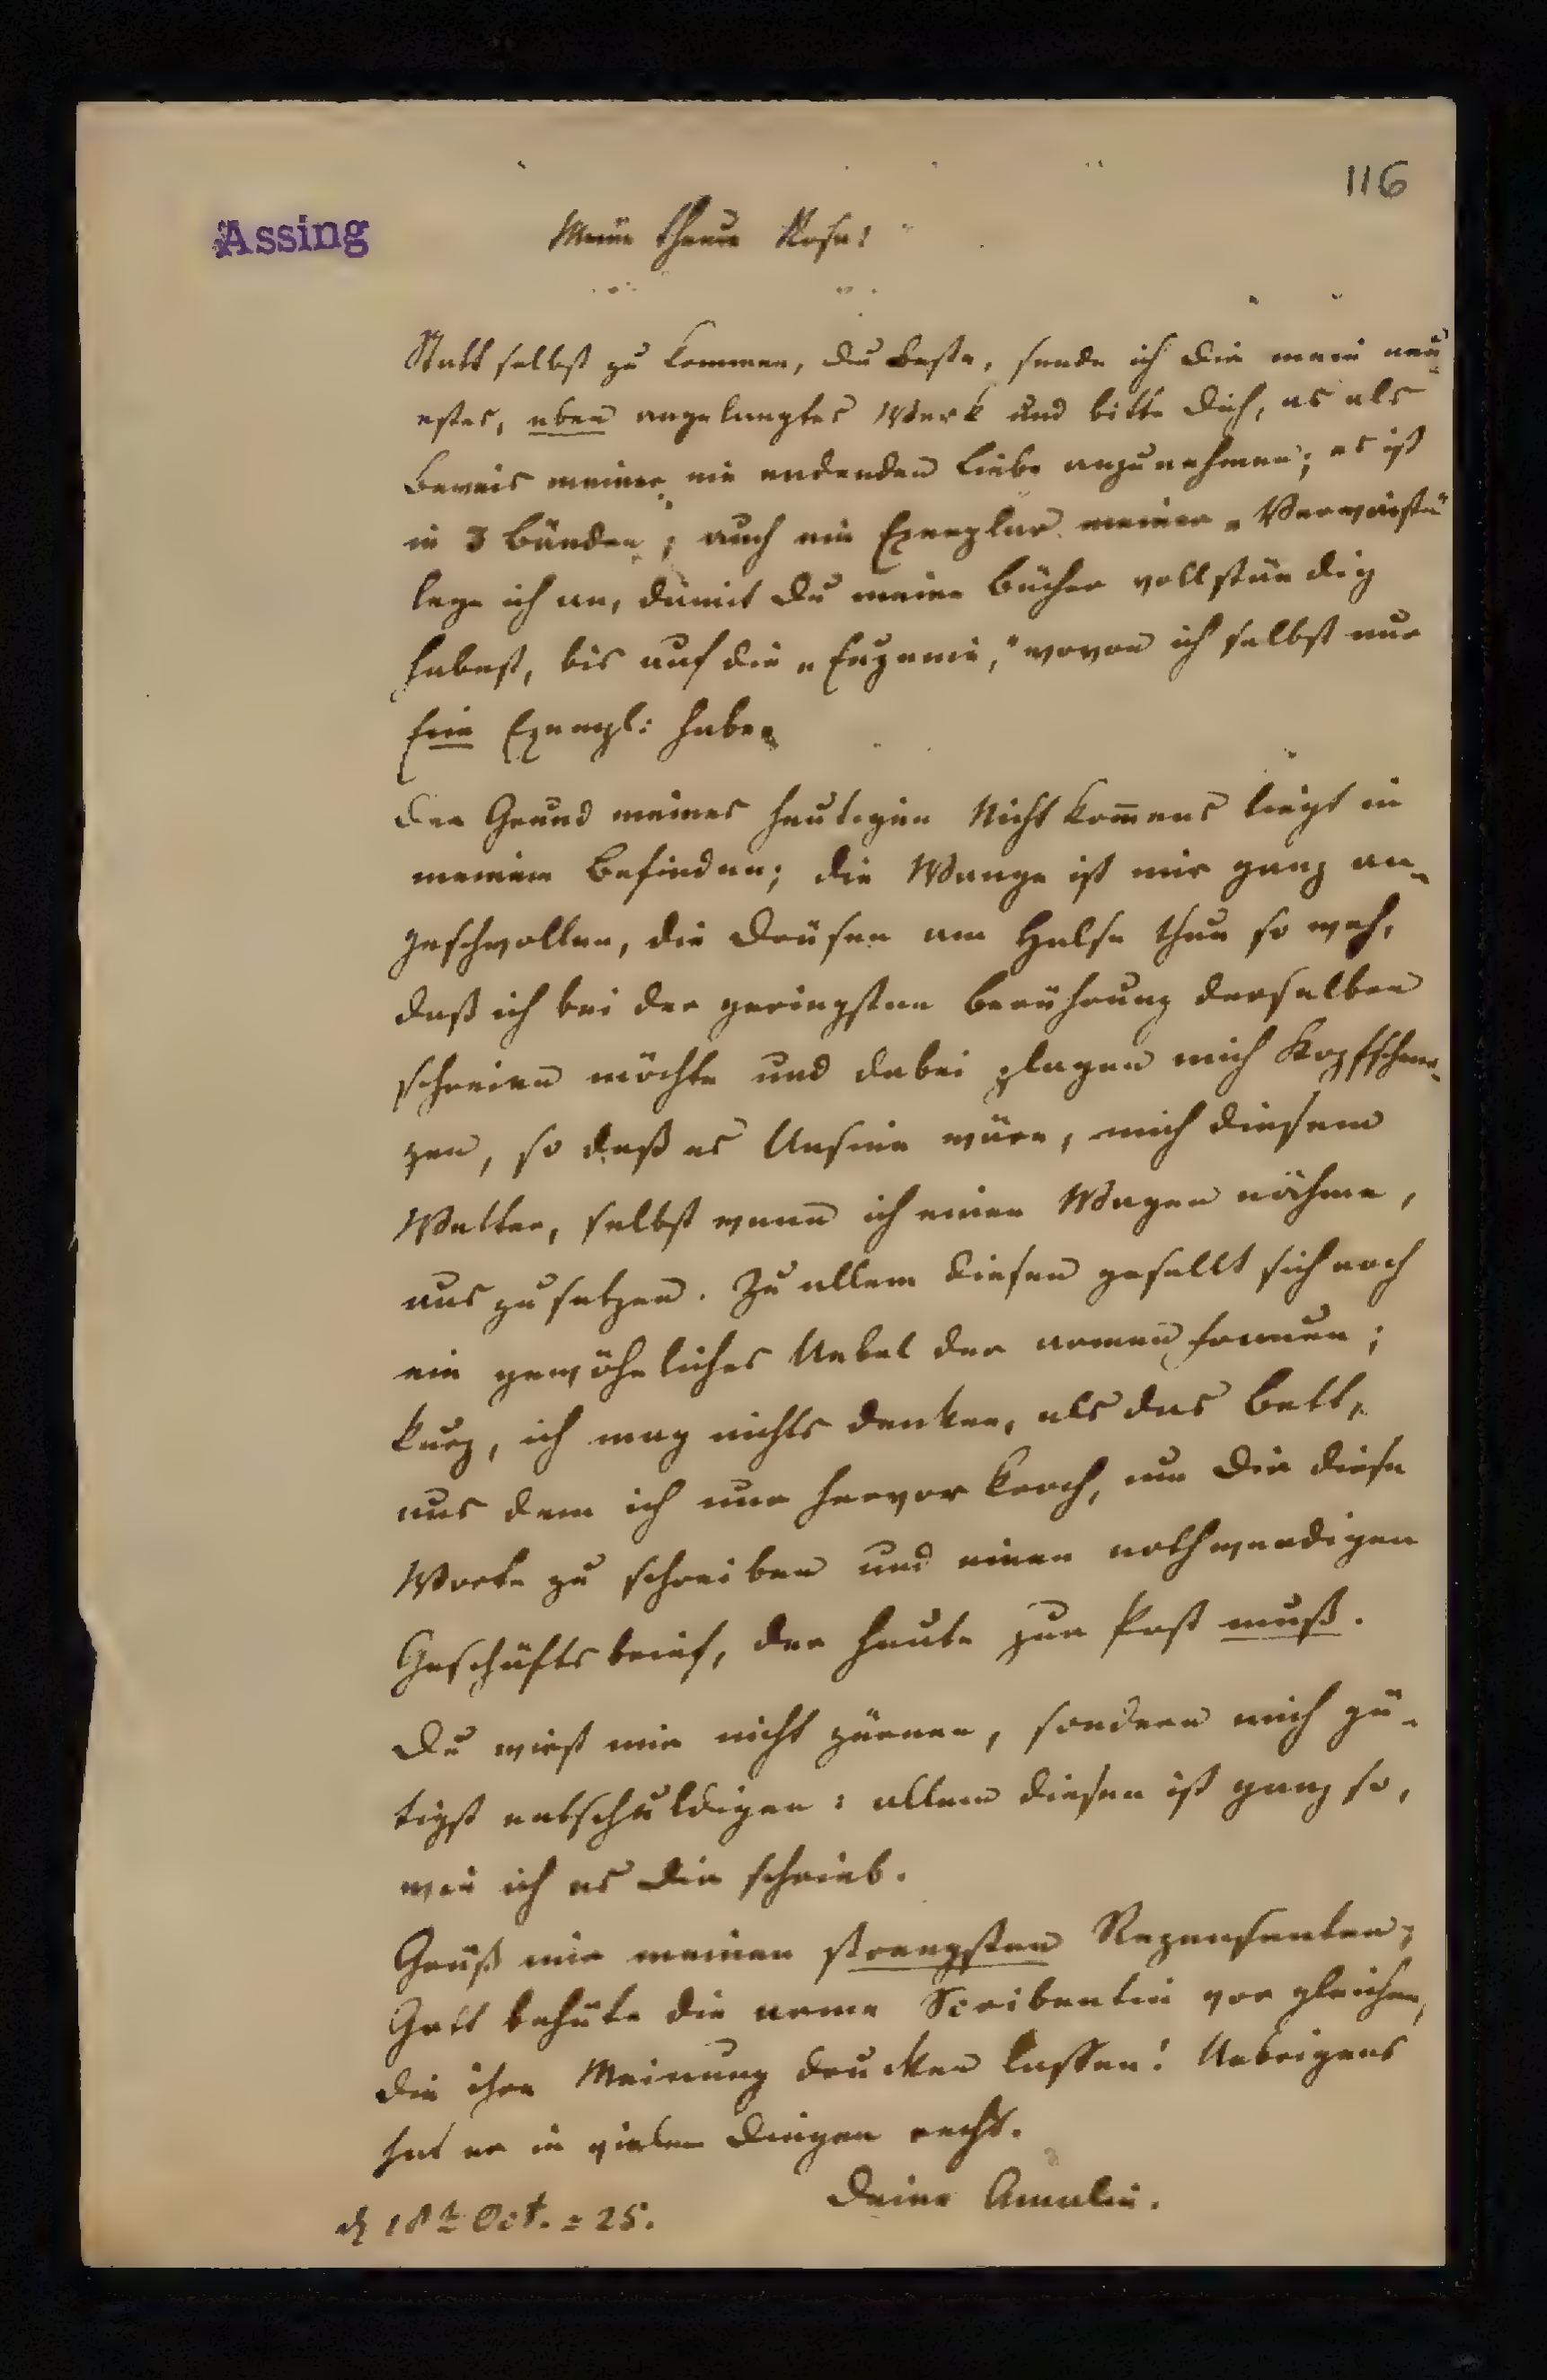 116
Assing
Meine theure Rosa!
Statt selbst zu kommen, du beste, sende ich dir mein neu-
estes, eben angelangtes Werk und bitte dich, es als
Beweis meiner nie endenden Liebe anzunehmen; es ist
in 3 Bänden; auch ein Exemplar meiner „Verwaiste“
lege ich an, damit du meine Bücher vollständig
habest, bis auf die „Eugenie,“ wovon ich selbst nur
Ein Exempl: habe.
Der Grund meines heutigen Nichtkom̅ens liegt in
meinem Befinden; die Wange ist mir ganz an-
geschwollen, die Drüsen am Halse thun so weh,
daß ich bei der geringsten Berührung derselben
schreien möchte und dabei plagen mich Kopfschmer-
zen, so daß es Unsinn wäre, mich diesem
Wetter, selbst wenn ich einen Wagen nähme,
auszusetzen. Zu allem diesen gesellt sich noch
ein gewöhnliches Uebel der armen Frauen;
kurz, ich mag nichts denken, als das Bett,
aus dem ich nur hervor kroch, um dir diese
Worte zu schreiben und einen nothwendigen
Geschäftsbrief, der heute zur Post muß.
Du wirst mir nicht zürnen, sondern mich gü-
tigst entschuldigen: allem diesen ist ganz so,
wie ich es dir schrieb.
Grüß mir meinen strengsten Rezensenten;
Gott behüte die arme Scribentin vor gleichen,
die ihre Meinung drucken lassen! Uebrigens
hat er in vielen Dingen recht.
Deine Amalie.
d 18t Oct. = 25.